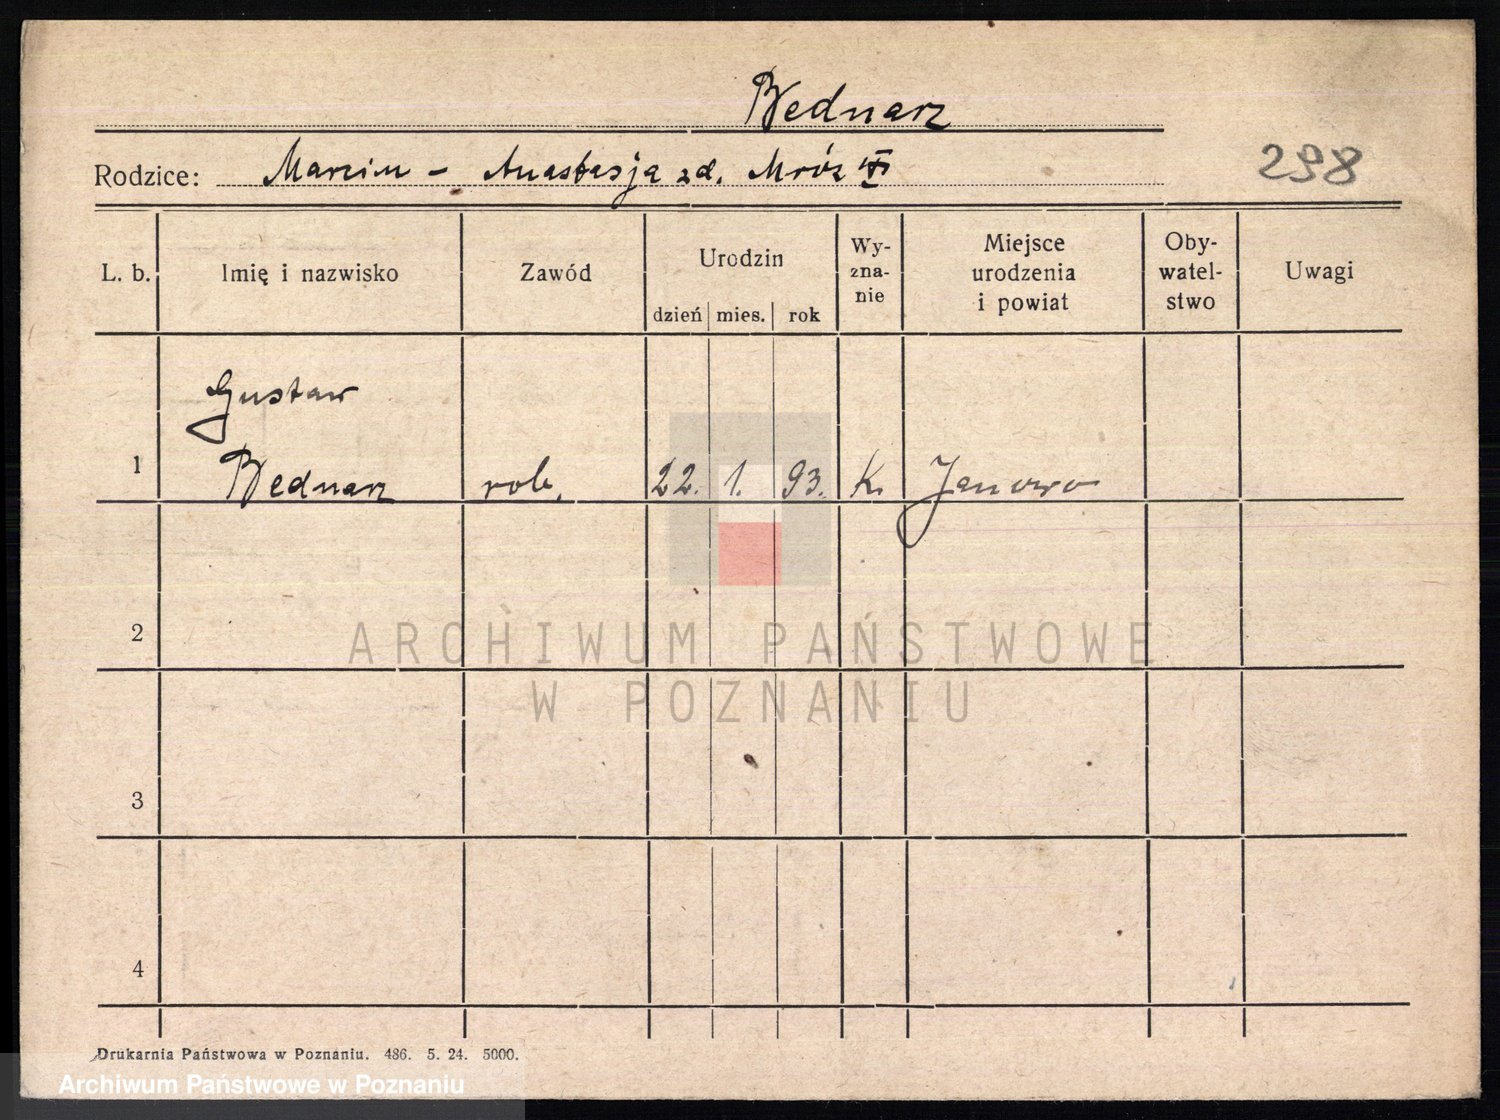 Bednarz
Rodzice: Marcin - Anastasja zd. Mróz
298
L. b. Imię i nazwisko Zawód Urodzin dzień mies. rok Wy-zna-nie Miejsce urodzenia i powiat Oby-watel-stwo Uwagi
Gustaw
1 Bednarz rob. 22. 1. 93. K. Janowo
2
ARCHIWUM PAŃSTWOWE
W POZNANIU
3
4
Drukarnia Państwowa w Poznaniu. 486. 5. 24. 5000.
Archiwum Państwowe w Poznaniu